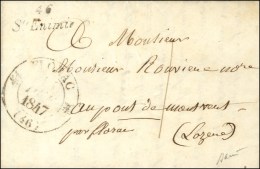 46
Ste Enimie
A Monsieur
Monsieur Rouvière notre
1847
(46)
au pont de montvert
par florac
(Lozère)